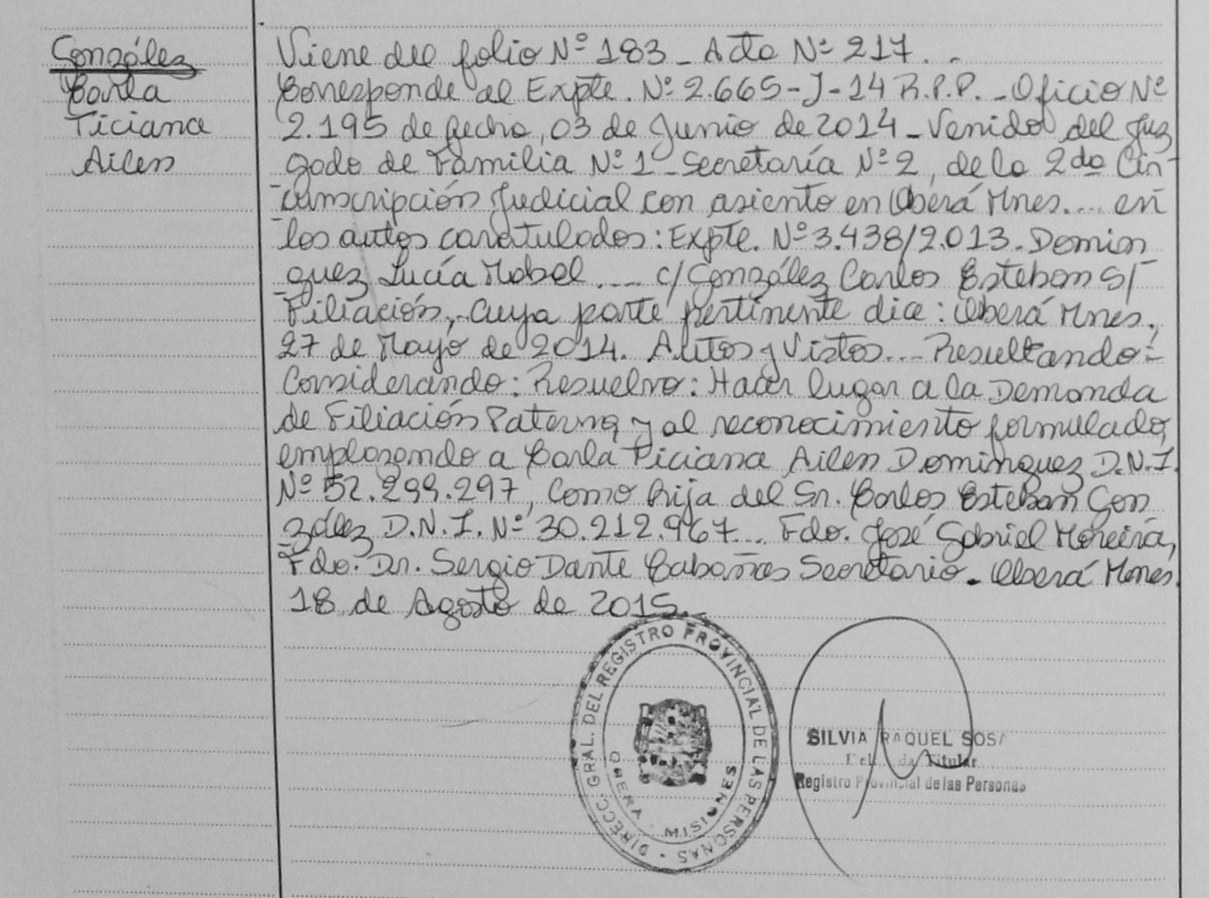 González
Carla
Ticiana
Ailen
Viene del folio Nº 183_ Acta Nº 217...
Corresponde al Expte. Nº 2.665-J-14 R.P.P._Oficio Nº
2.195 de fecha, 03 de Junio de 2014_Venido del Juz
gado de Familia Nº 1_Secretaría Nº 2, de la 2da Cir-
cunscripción Judicial con asiento en Oberá Mnes.... en
los autos caratulados: Expte. Nº 3.438/2.013_Domin
guez Lucía Mabel.... c/ González Carlos Esteban S/
Filiación, Cuya parte pertinente dice: Oberá Mnes,
27 de Mayo de 2014. Autos y Vistos... Resultando:-
Considerando: Resuelvo: Hacer lugar a la Demanda
de Filiación Paterna y al reconocimiento formulado,
emplazando a Carla Ticiana Ailen Dominguez D.N.I.
Nº 52.299.297, Como hija del Sr. Carlos Esteban Gon
zález D.N.I. Nº 30.212.967... Fdo. José Gabriel Moreira,
Fdo. Dr. Sergio Dante Cabañas Secretario_ Oberá Mones.
18 de Agosto de 2015_
DIRECC. GRAL. DEL REGISTRO PROVINCIAL DE LAS PERSONAS
OBERA MISIONES
SILVIA RAQUEL SOSA
Titular
Registro Provincial de las Personas